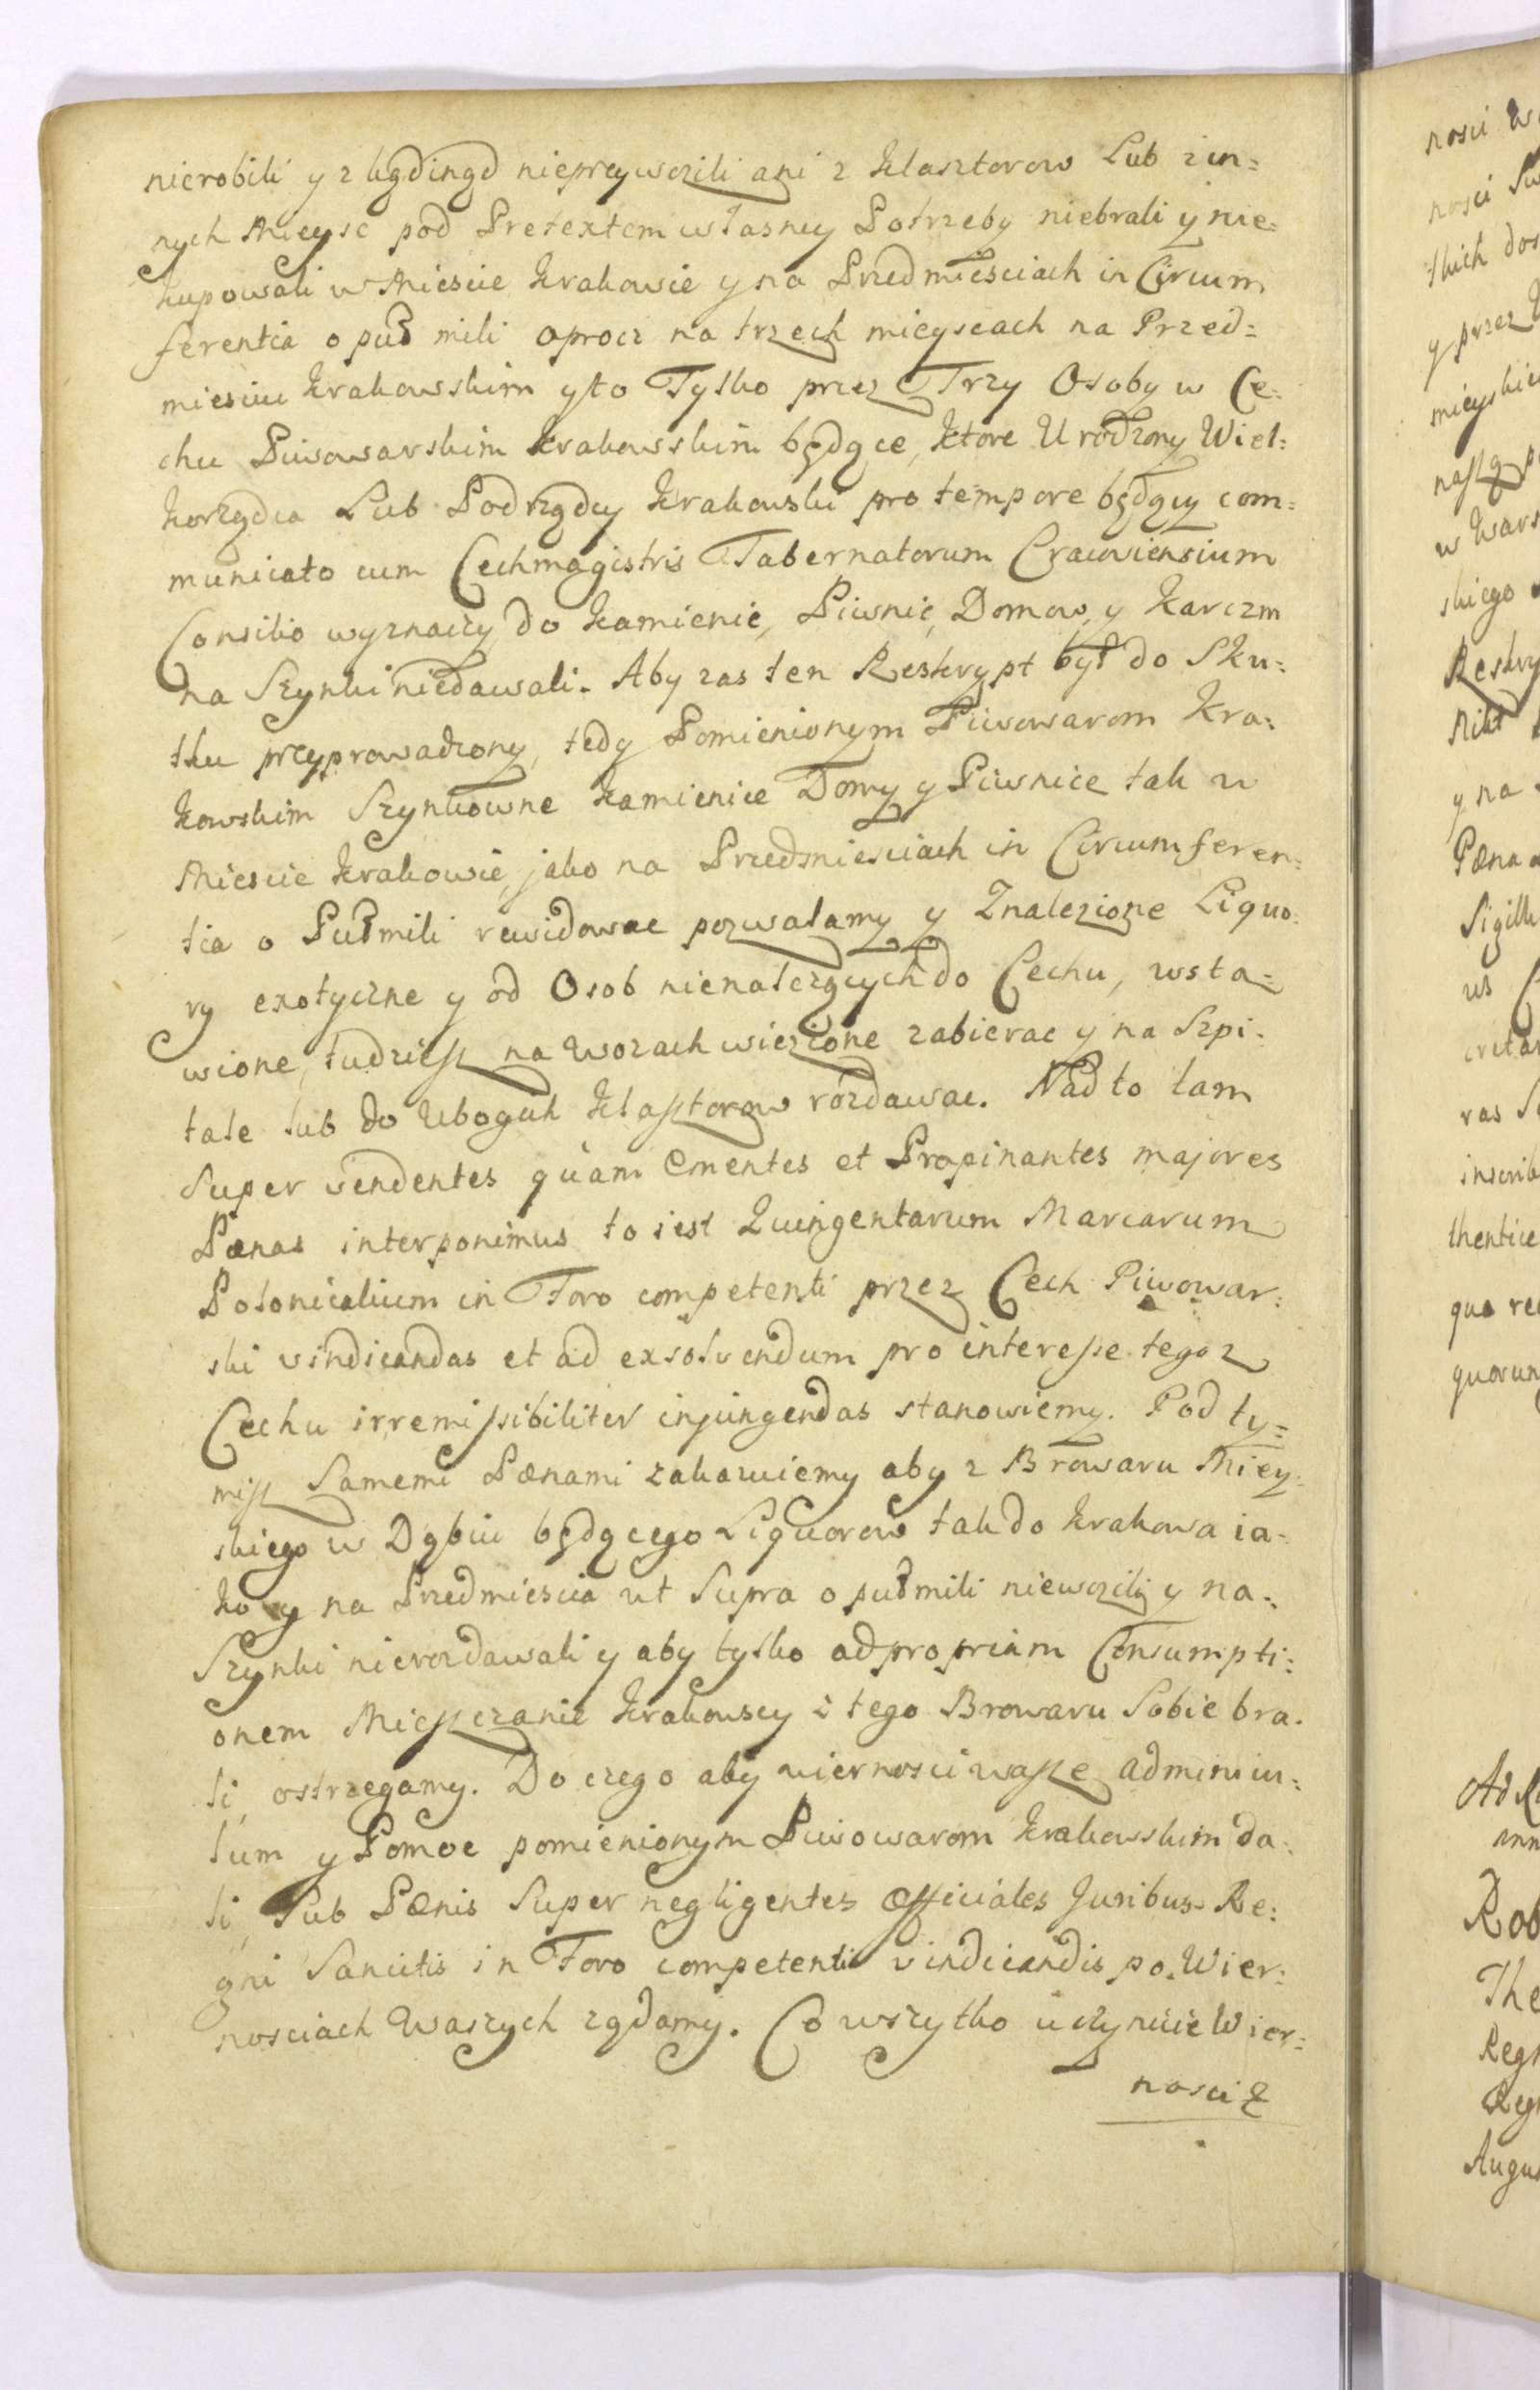 nierobili y z kądingd nieprzywozili ani z Klasztorow Lub z in=
nych Mieysc pod Pretextem własney Potrzeby niebrali y nie=
kupowali w Miescie Krakowie y na Przedmiesciach in Circum
ferentia o puł mili oprocz na trzech mieyscach na Przed=
miesciu Krakowskim y to Tylko przez Trzy Osoby w Ce=
chu Piwowarskim Krakowskim będące, ktore Urodzony Wiel=
korządca Lub Podrządcy Krakowski pro tempore będący com=
municato cum Cechmagistris Tabernatorum Cracoviensium
Consilio wyznaczy, do Kamienic, Piwnic, Domow, y Karczm
na Szynki niedawali. Aby zas ten Reskrypt był do Sku=
tku przyprowadzony, tedy Pomienionym Piwowarom Kra=
kowskim Szynkowne Kamienice Domy y Piwnice tak w
Miescie Krakowie, jako na Przedmiesciach in Circumferen=
tia o Pułmili rewidowac pozwalamy y Znalezione Liquo=
ry exotyczne y od Osob nienalezących do Cechu, wsta=
wione, tudziesz na Wozach wiezione zabierac y na Szpi=
tale lub do Ubogich Klasztorow rozdawac. Nad to tam
Super vendentes quam Ementes et Propinantes majores
Pænas interponimus to iest Quingentarum Marcarum
Polonicalium in Foro competenti przez Cech Piwowar=
ski vindicandas et ad exsolvendum pro interesse tegoz
Cechu irremissibiliter injungendas stanowiemy. Pod ty=
misz Samemi Pænami zakazuiemy aby z Browaru Miey=
skiego w Dąbiu będącego Liquorow tak do Krakowa ia=
ko y na Przedmiescia ut Supra o pułmili niewozili y na=
Szynki nierozdawali y aby tylko ad propriam Consumpti=
onem Mieszczanie Krakowscy z tego Browaru Sobie bra=
li, ostrzegamy. Do czego aby wiernosci wasze adminicu=
lum y Pomoc pomienionym Piwowarom Krakowskim da=
li, Sub Pænis Super negligentes Officiales Juribus Re=
gni Sancitis in Foro competenti vindicandis po Wier=
nosciach Waszych ządamy. Co wszytko uczynicie Wier=
nosci Z

nosci
nosci
tkich dos
y przez
mieyskie
nastą
w Wars
skiego
Reskry
Nikt
y na
Pæna
Sigillu
us
cretar
ras
inscrib
thentice
qua re
quorun
Ad
ann
Rob
The
Reg
Reg
Augus